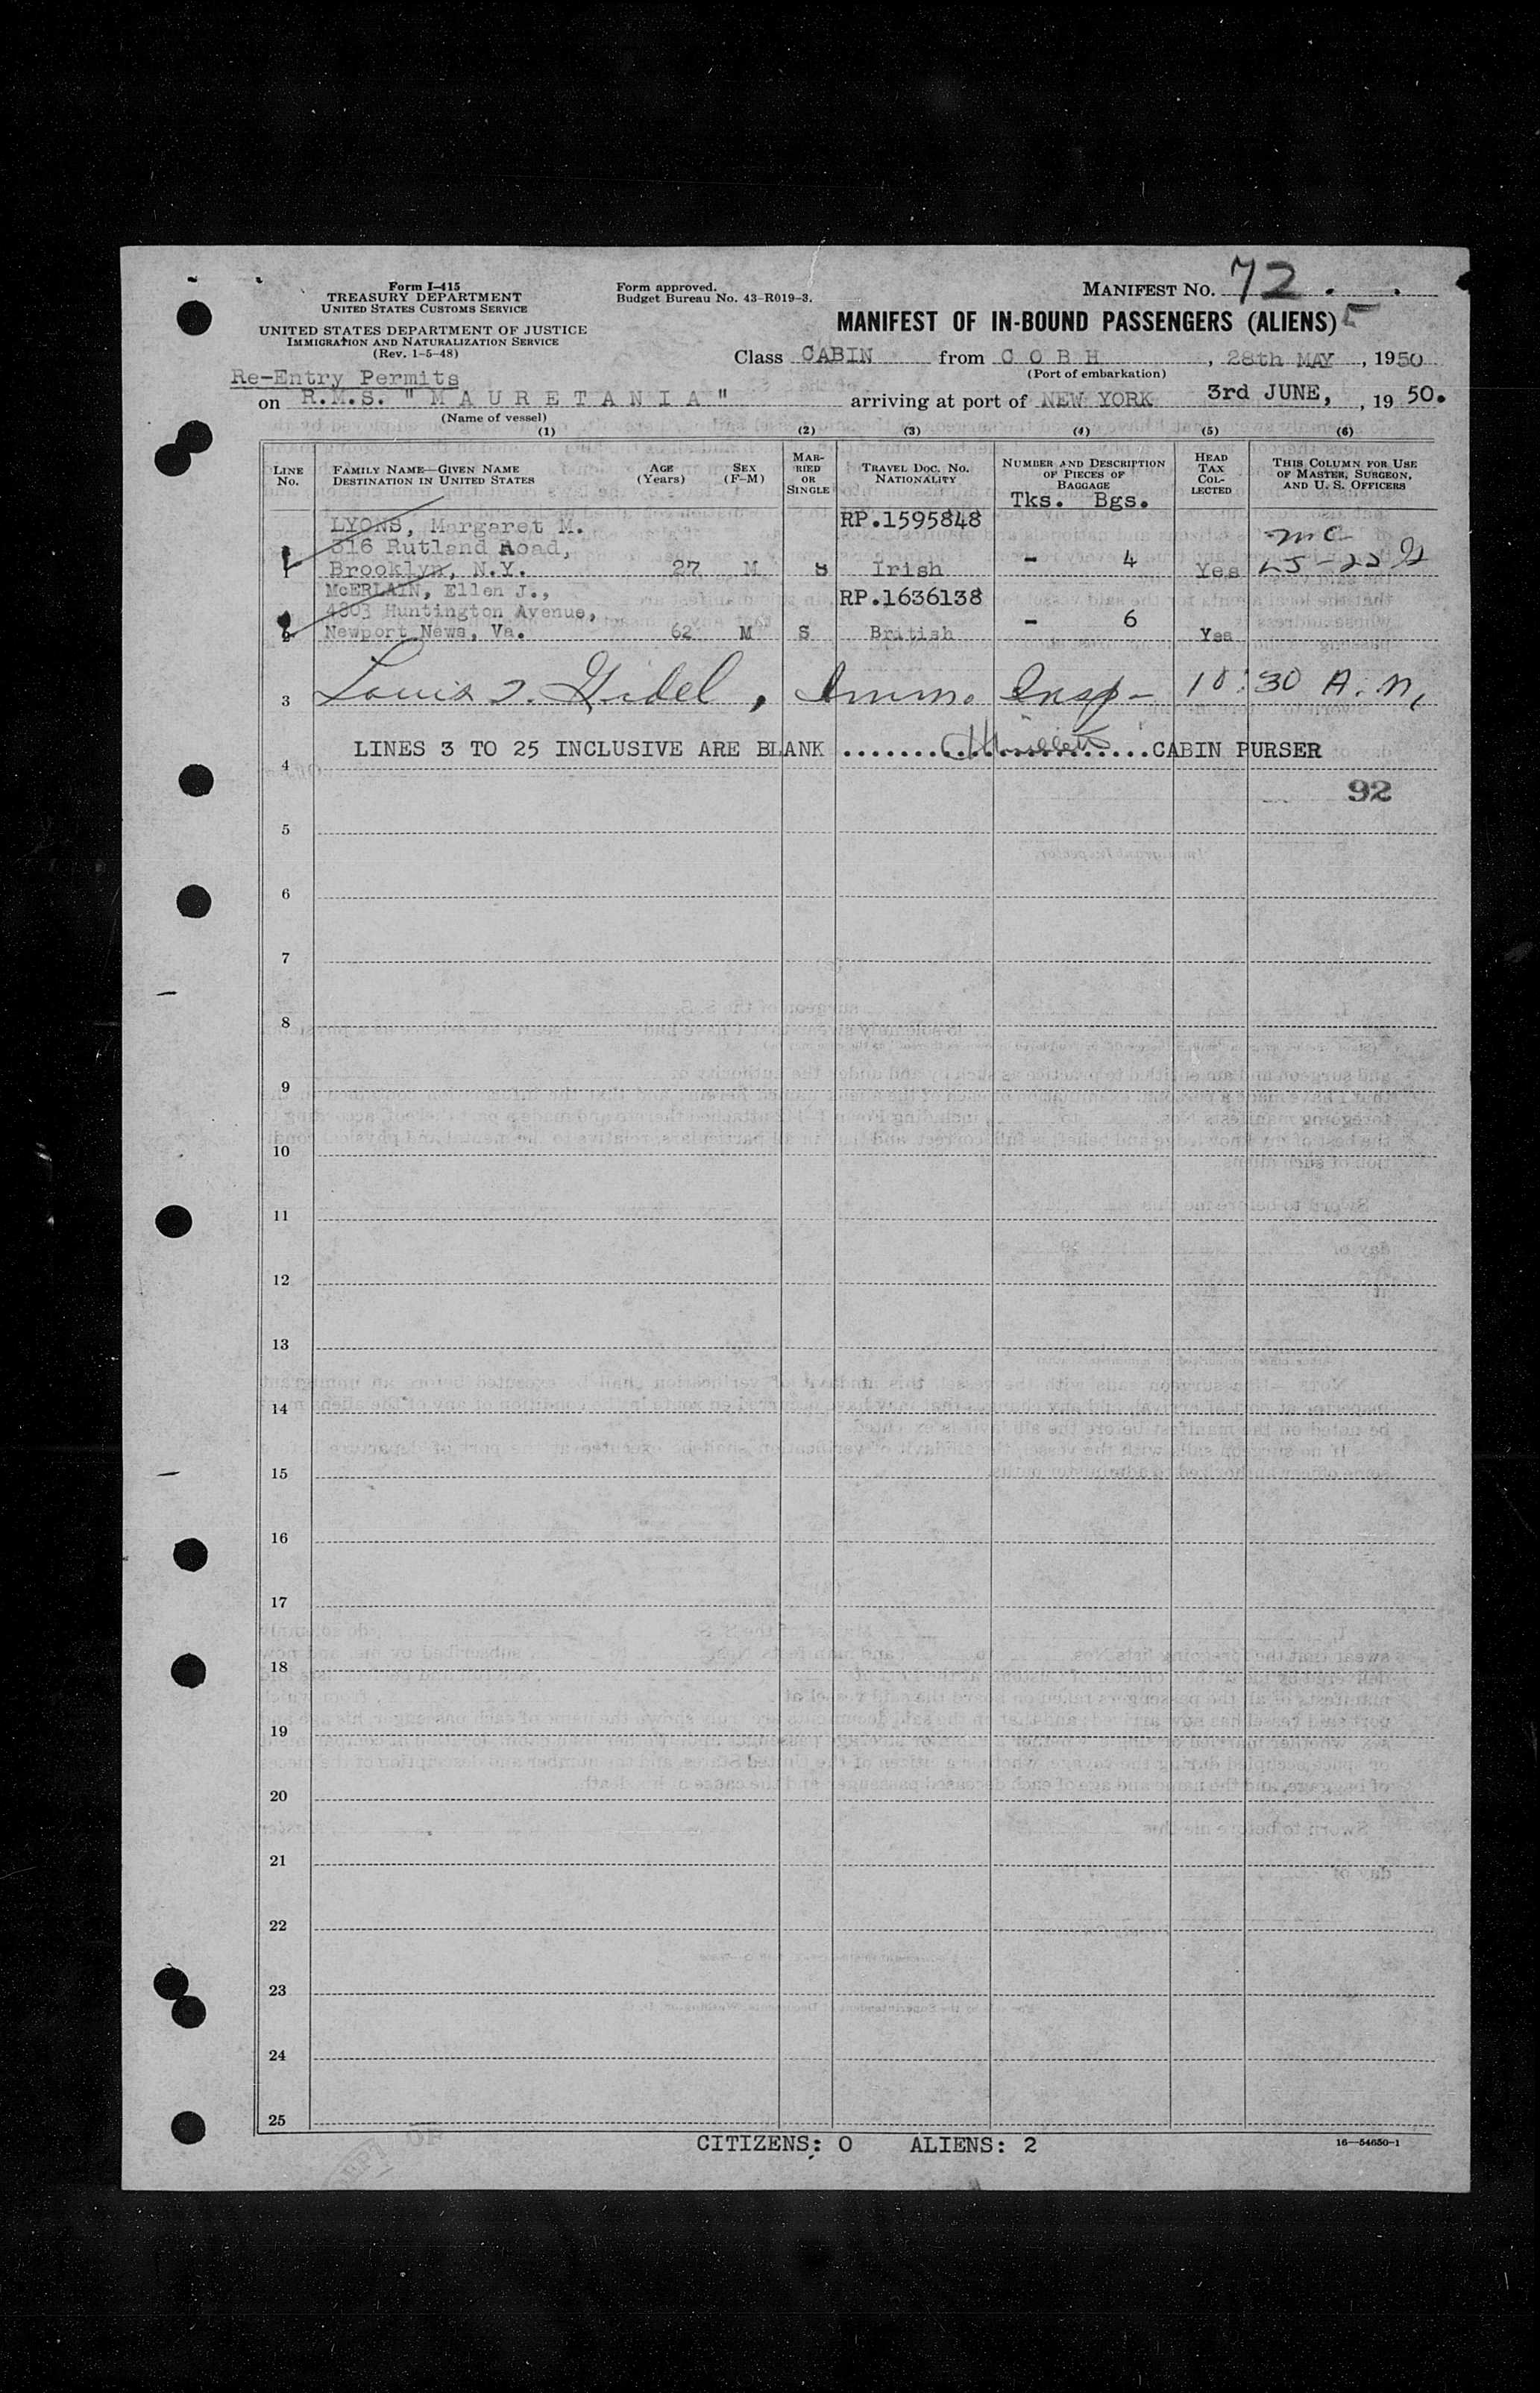 Form I-415
TREASURY DEPARTMENT
UNITED STATES CUSTOMS SERVICE
UNITED STATES DEPARTMENT OF JUSTICE
IMMIGRATION AND NATURALIZATION SERVICE
(Rev. 1-5-48)
Form approved.
Budget Bureau No. 43-R019-3.
MANIFEST NO. 72.
MANIFEST OF IN-BOUND PASSENGERS (ALIENS)
Class CABIN from C O B H, 28th MAY, 1950
(Port of embarkation)
Re-Entry Permits
on R.M.S. "M A U R E T A N I A" arriving at port of NEW YORK 3rd JUNE, , 19 50.
(Name of vessel)
(1) (2) (3) (4) (5) (6)
LINE No. FAMILY NAME—GIVEN NAME DESTINATION IN UNITED STATES AGE (Years) SEX (F-M) MARRIED OR SINGLE TRAVEL DOC. NO. NATIONALITY NUMBER AND DESCRIPTION OF PIECES OF BAGGAGE HEAD TAX COLLECTED THIS COLUMN FOR USE OF MASTER, SURGEON, AND U. S. OFFICERS
Tks. Bgs.
LYONS, Margaret M. RP.1595848
316 Rutland Road,
1 Brooklyn, N.Y. 27 M S Irish - 4 Yes
McERLAIN, Ellen J., RP.1636138
4803 Huntington Avenue,
2 Newport News, Va. 62 M S British - 6 Yes
3 Louis Gidel, Imm. Insp- 10:30 A.M,
LINES 3 TO 25 INCLUSIVE ARE BLANK ........................CABIN PURSER
4
92
5
6
7
8
9
10
11
12
13
14
15
16
17
18
19
20
21
22
23
24
25
CITIZENS: 0 ALIENS: 2
16—54650-1